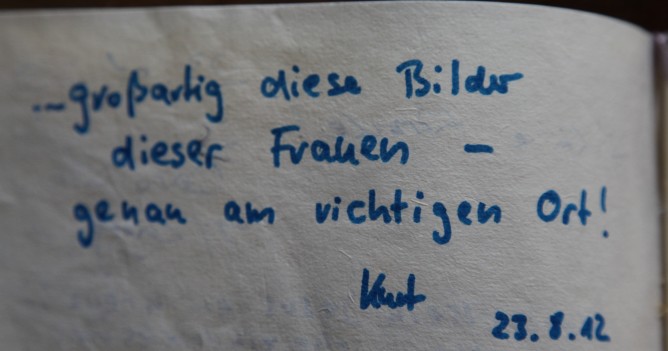 ...großartig diese Bilder
dieser Frauen –
genau am richtigen Ort!
Kurt
23.8.12